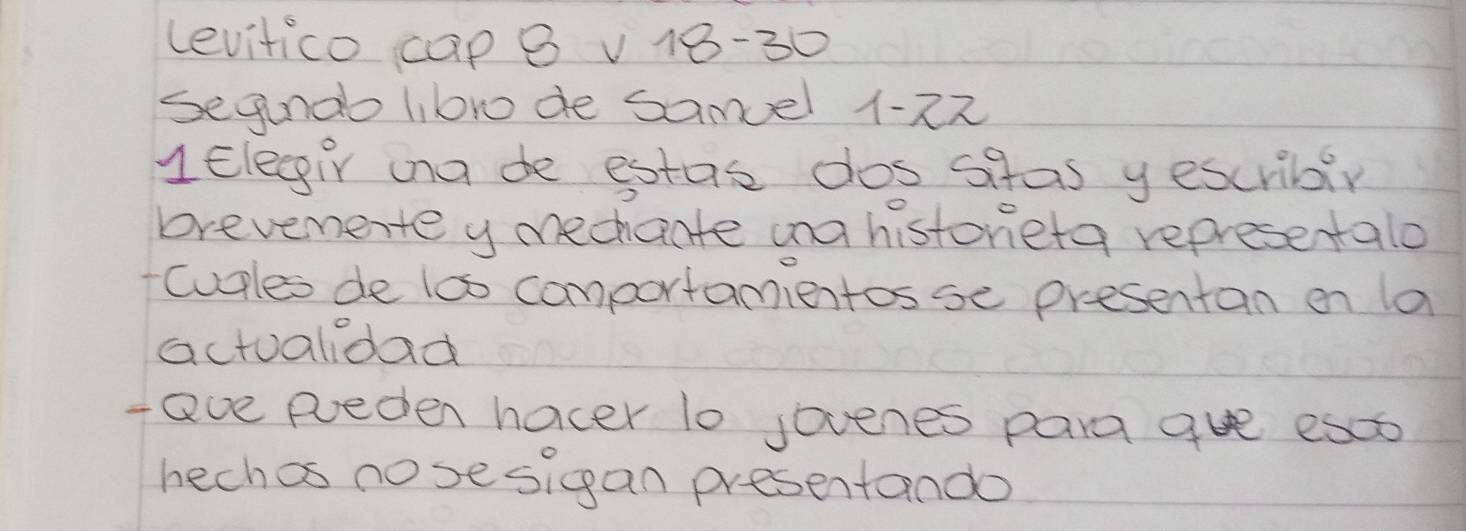 Levitico cap 8 v 18-30
Segundo libro de Samuel 1-22
1 Elegir una de estas dos sitas y escribir
brevemente y mediante una historieta representalo
-Cuales de los comportamientos se presentan en la
actualidad
-Que pueden hacer lo jovenes para que esos
hechos no se sigan presentando